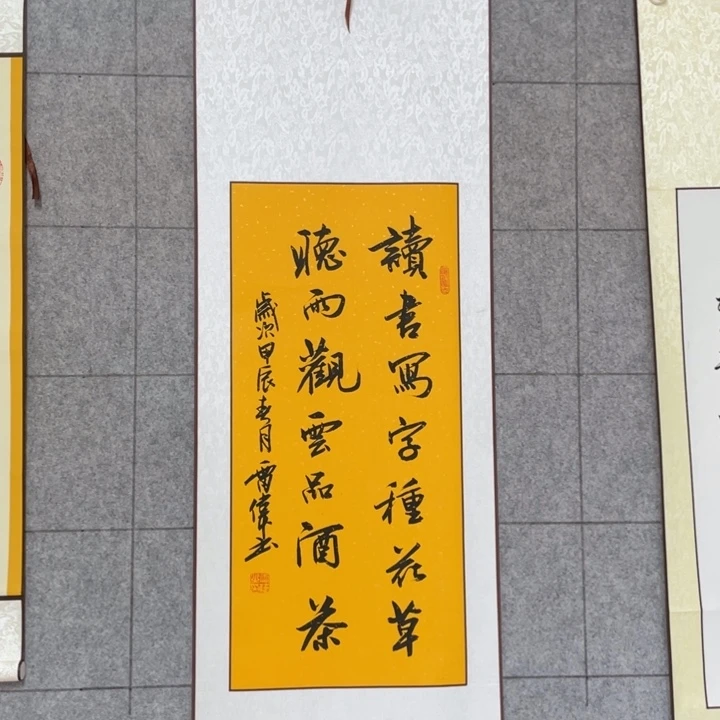 讀書寫字種花草
聽雨觀雲品酒茶
歲次甲辰春月雷偉书